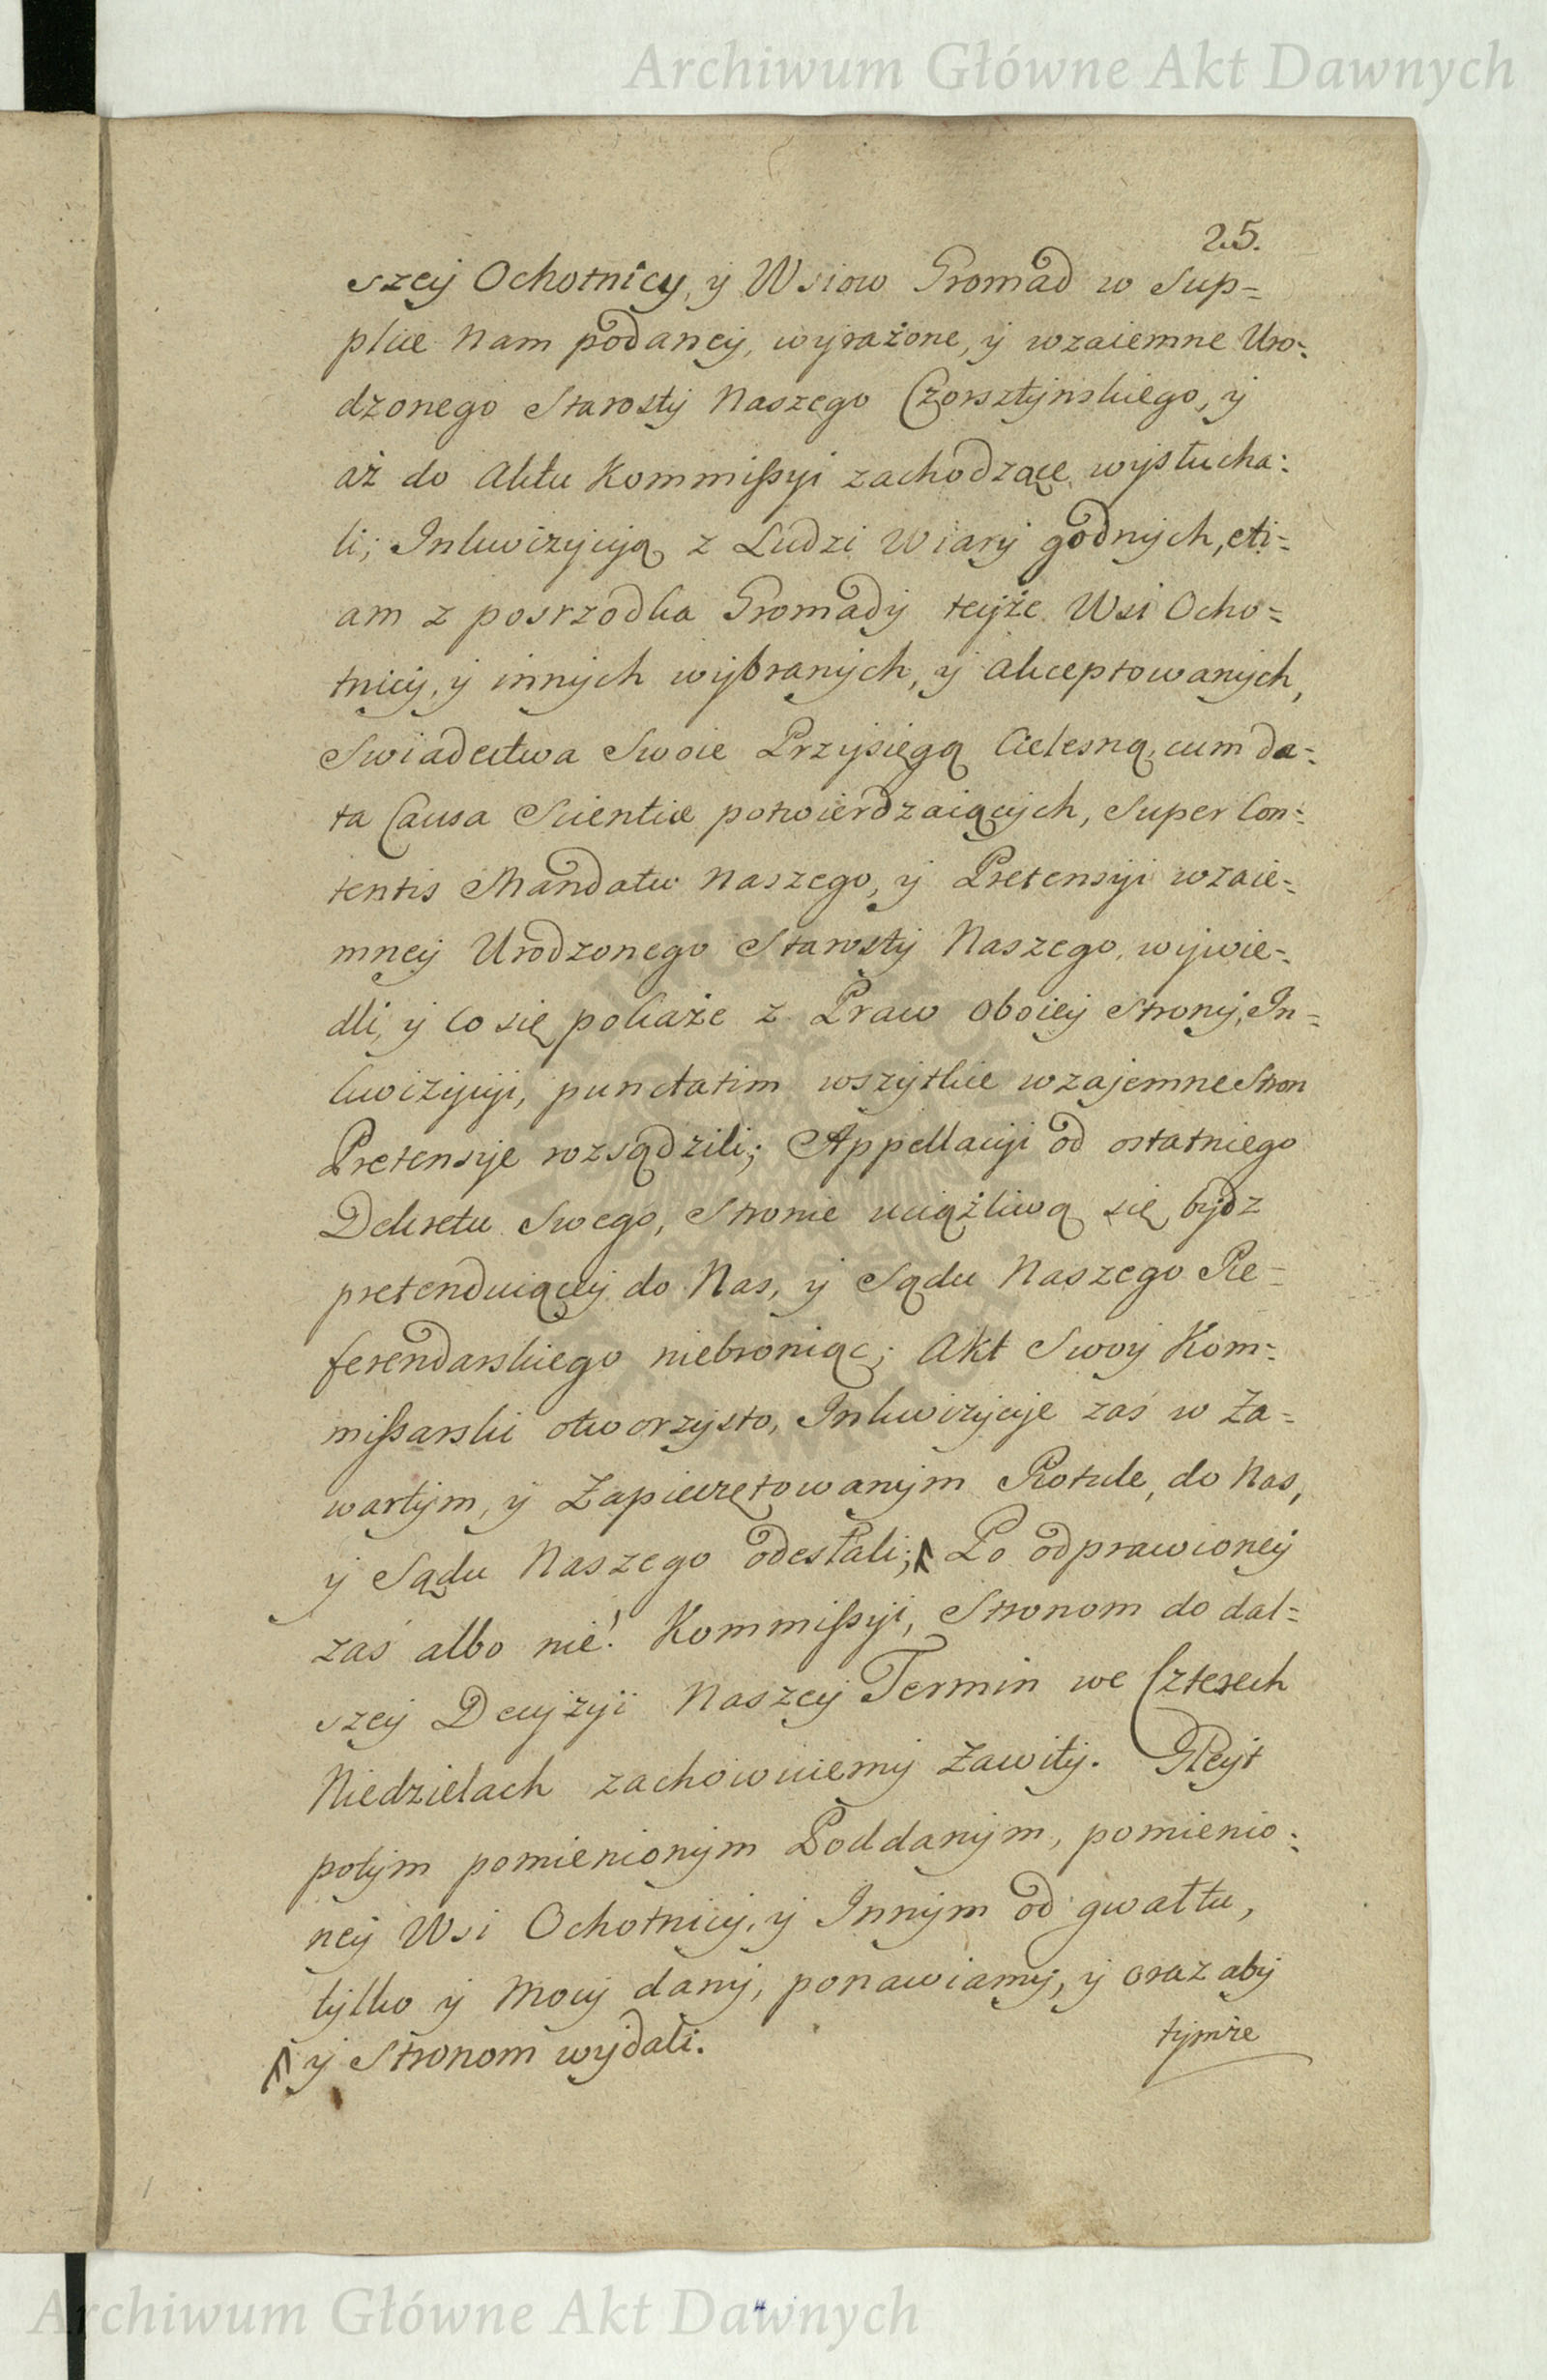 Archiwum Główne Akt Dawnych
25.
szey Ochotnicy, y Wsiow Gromad w Sup=
plice Nam podaney, wyrażone, y wzaiemne Uro=
dzonego Starosty Naszego Czorsztynskiego, y
aż do Aktu Kommissyi zachodzące wysłucha=
li; Inkwizycyą z Ludzi Wiary godnych, eti=
am z posrzodka Gromady teyże Wsi Ocho=
tnicy, y innych wybranych, y akceptowanych,
Swiadectwa Swoie Przysięgą Cielesną, cum da=
ta Causa Scientiæ potwierdzaiących, Super Con=
tentis Mandatu Naszego, y Pretensyi wzaie=
mney Urodzonego Starosty Naszego, wywie=
dli, y co się pokaże z Praw oboiey Strony, In=
kwizycyi, punctatim wszytkie wzajemne Stron
Pretensye rozsądzili; Appellacyi od ostatniego
Dekretu Swego, Stronie uciążliwą się bydz
pretenduiącey do Nas, y Sądu Naszego Re=
ferendarskiego niebroniąc; Akt Swoy Kom=
missarski otworzysto, Inkwizycye zaś w Za=
wartym, y Zapieczętowanym Rotule, do Nas,
y Sądu Naszego odesłali; Po odprawioney
zaś albo nie! Kommissyi, Stronom do dal=
szey Decyzyi Naszey Termin we Czterech
Niedzielach zachowuiemy Zawity. Gleyt
potym pomienionym Poddanym, pomienio=
ney Wsi Ochotnicy, y Innym od gwałtu,
tylko y Mocy dany, ponawiamy, y oraz aby
tymże
y Stronom wydali.
Archiwum Główne Akt Dawnych